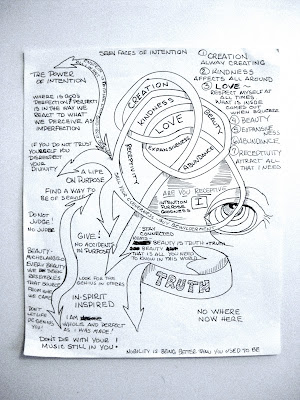 SEVEN FACES OF INTENTION
THE POWER
OF INTENTION
WHERE IS GOD'S
PERFECTION?
IS IN THE WAY WE
REACT TO WHAT
WE PERCEIVE AS
IMPERFECTION
IF YOU DO NOT TRUST
YOURSELF YOU
DISRESPECT
YOUR
DIVINITY
A LIFE
ON PURPOSE
FIND A WAY TO
BE OF SERVICE
DO NOT
JUDGE!
NO JUDGE
GIVE!
NO ACCIDENT
IN PURPOSE
BEAUTY -
MICHELANGELO
EVERY
WE
THAT
FROM
WE CAME
LOOK FOR THE
GENIUS IN OTHERS
IN-SPIRIT
INSPIRED
DON'T
LET LIFE
DE-GENIUS
YOU!
I AM
WHOLE AND PERFECT
AS I WAS MADE!
DON'T DIE WITH YOUR
MUSIC STILL IN YOU!
CREATION
KINDNESS
LOVE
EXPANSIVENESS
BEAUTY
ABUNDANCE
RECEPTIVITY
ARE YOU RECEPTIVE
INTENTION
PURPOSE
GOODNESS
I
STAY
CONNECTED
BEAUTY IS TRUTH + TRUTH
BEAUTY
THAT IS ALL YOU NEED
TO KNOW IN THIS WORLD
TRUTH
① CREATION:
ALWAYS CREATING
② KINDNESS
AFFECTS ALL AROUND
③ LOVE ~
RESPECT MYSELF AT
ALL TIMES
WHAT IS INSIDE
COMES OUT
WHEN SQUEEZED
④ BEAUTY
⑤ EXPANSIVE
NESS
⑥ ABUNDANCE
⑦ RECEPTIVITY
ATTRACT ALL
THAT I NEED
NO WHERE
NOW HERE
NOBILITY IS BEING BETTER THAN YOU USED TO BE